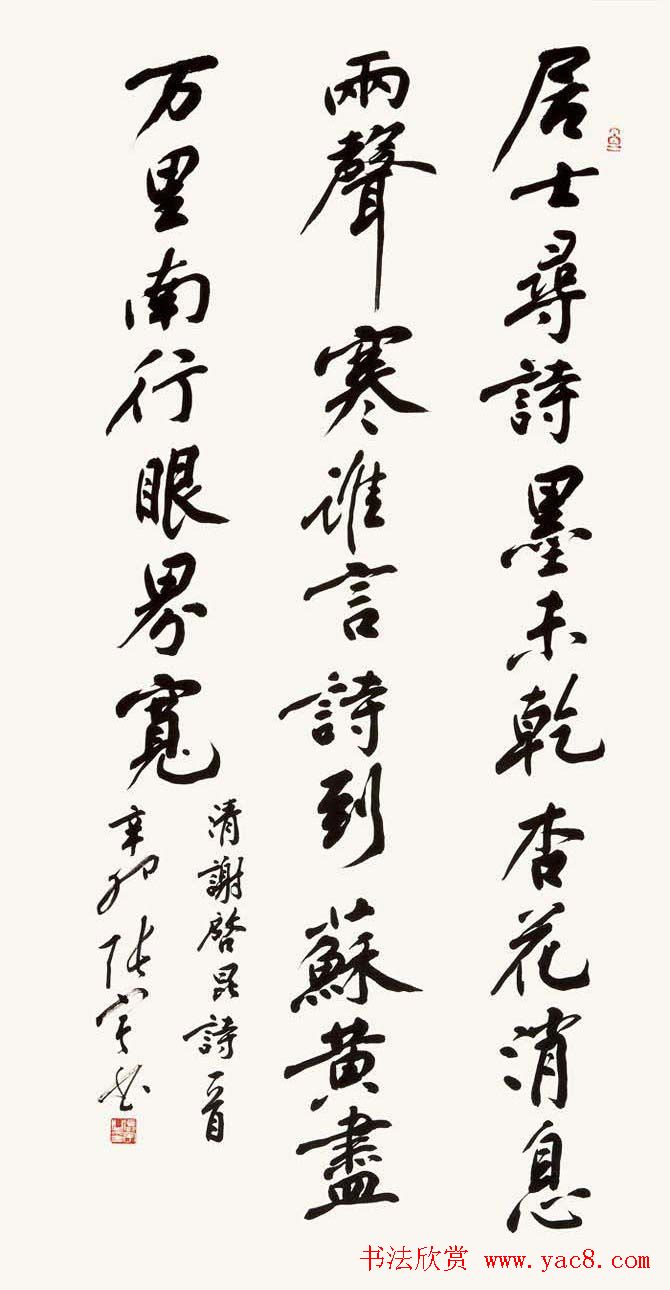 居士尋詩墨未乾杏花消息
雨聲寒谁言詩到蘇黄盡
万里南行眼界寬
清謝啓昆詩一首
辛卯张书
书法欣赏 www.yac8.com